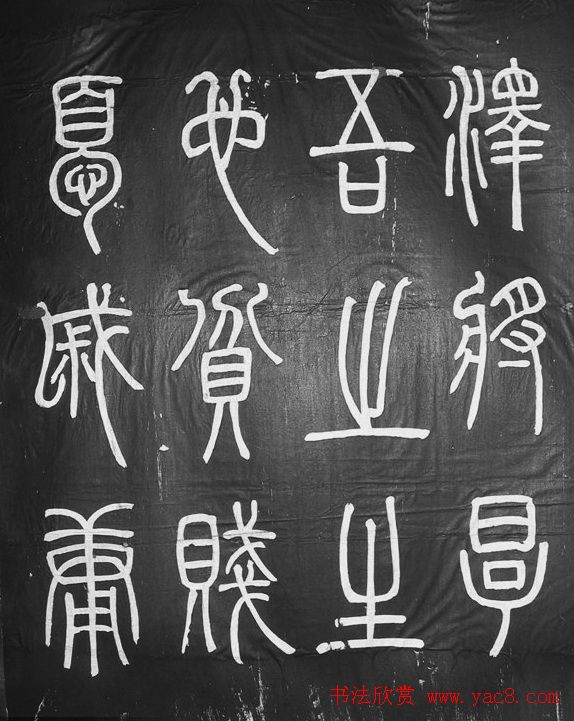 澤將厚
吾之生
也貧賤
憂戚庸
书法欣赏 www.yac8.com